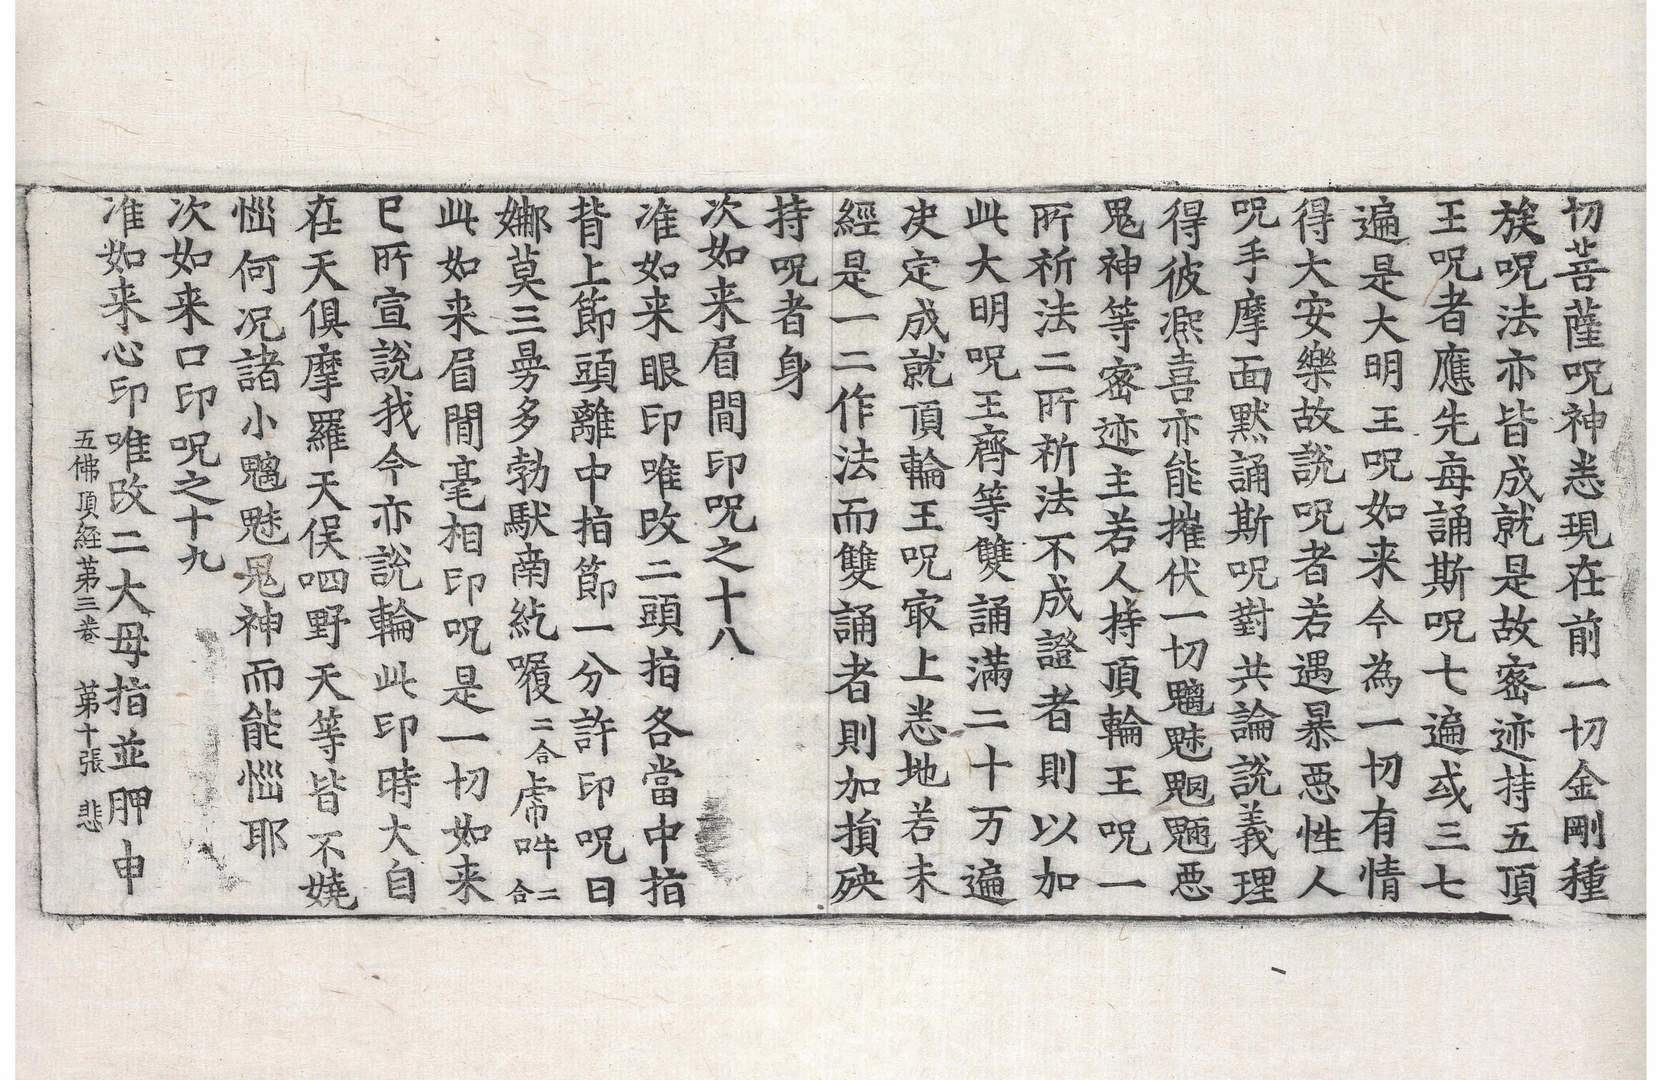 切菩薩呪神悉現在前一切金剛種
族呪法亦皆成就是故密迹持五頂
王呪者應先每誦斯呪七遍或三七
遍是大明王呪如来今為一切有情
得大安樂故説呪者若遇暴惡性人
呪手摩面默誦斯呪對共論說義理
得彼凞喜亦能摧伏一切魑魅魍魎惡
鬼神等密迹主若人持頂輪王呪一
所祈法二所祈法不成證者則以加
此大明呪王齊等雙誦滿二十万遍
决定成就頂輪王呪㝡上悉地若未
經是一二作法而雙誦者則加損殃
持呪者身
次如来眉間印呪之十八
准如来眼印唯改二頭指各當中指
背上節頭離中指節一分許印呪曰
娜莫三曼多勃馱南紇㘑二合虖𤙖二合
此如来眉間毫相印呪是一切如来
已所宣說我今亦說輪此印時大自
在天俱摩羅天俣呬野天等皆不嬈
惱何况諸小魑魅鬼神而能惱耶
次如来口印呪之十九
准如来心印唯改二大母指並胛申
五佛頂経苐三卷 苐十張 悲